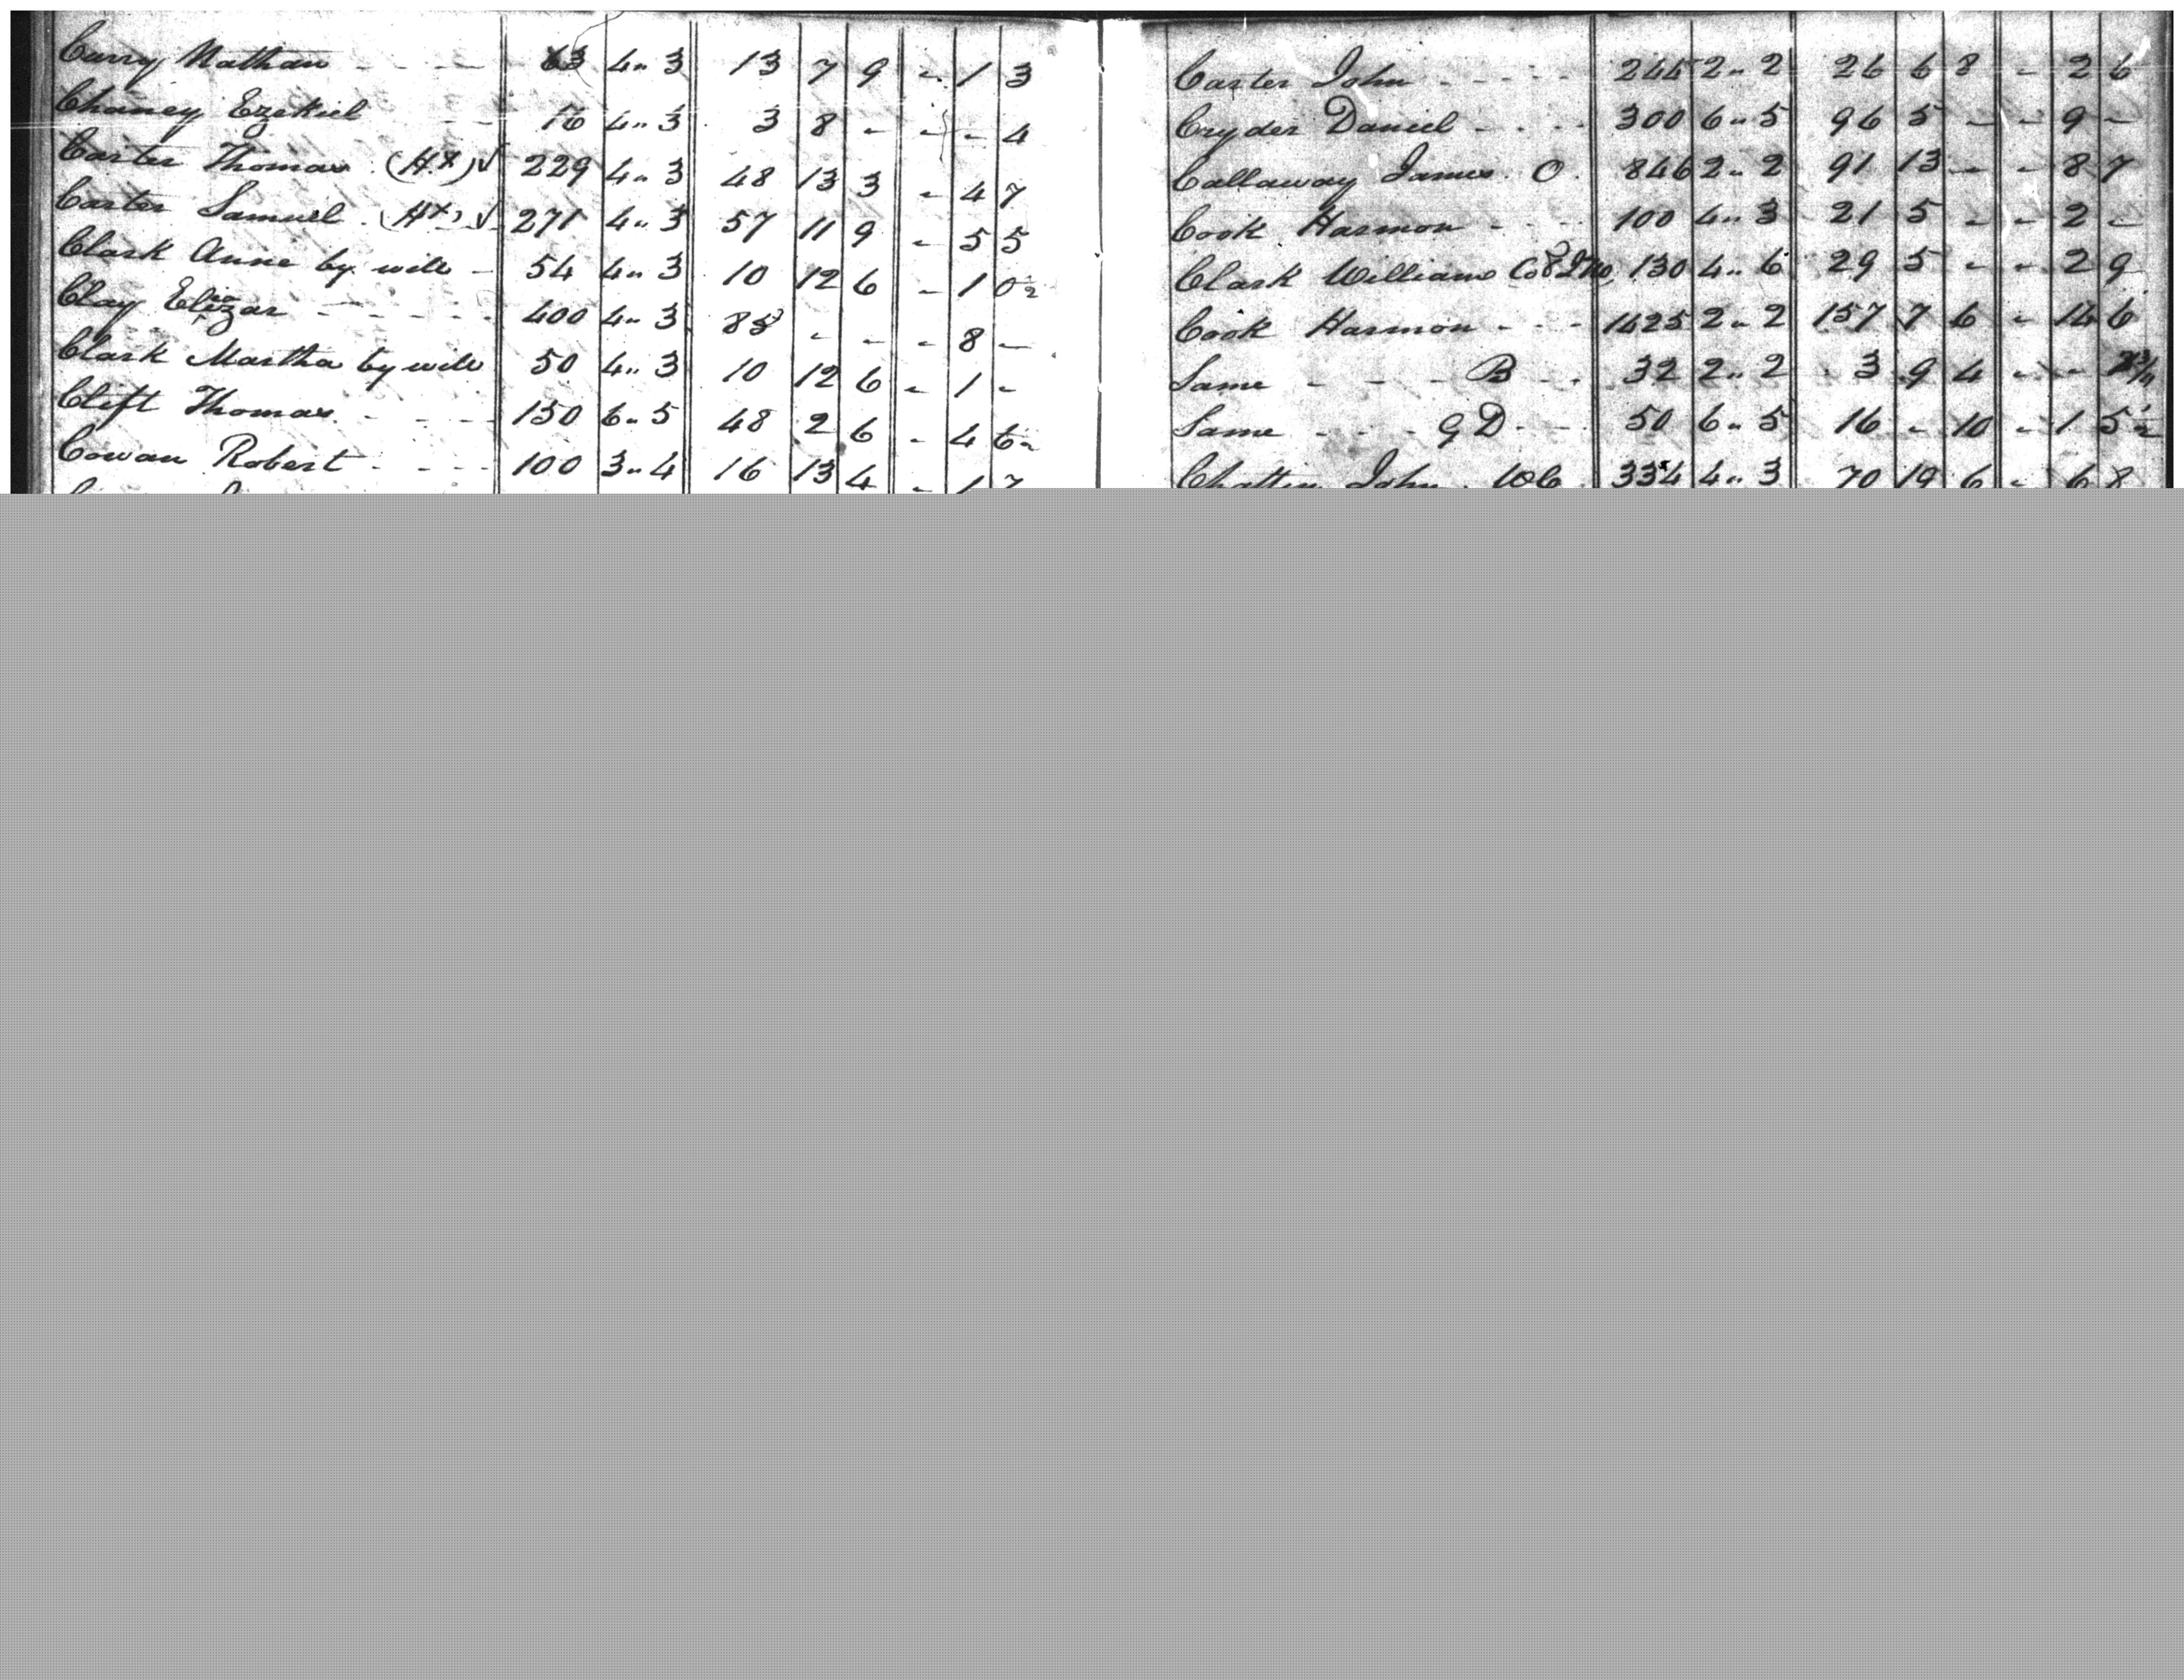 Curry Nathan 63 4 " 3 13 7 9 - 1 3
Chaney Ezekiel 16 4 " 3 3 8 - - - 4
Carter Thomas (HX) √ 229 4 " 3 48 13 3 - 4 7
Carter Samuel (HX) √ 271 4 " 3 57 11 9 - 5 5
Clark Anne by will - 54 4 " 3 10 12 6 - 1 0½
Clay 400 4 " 3 85 - - - 8 -
Clark Martha by will 50 4 " 3 10 12 6 - 1 -
Clift Thomas 150 6 " 5 48 2 6 - 4 6
Cowan Robert 100 3 " 4 16 13 4 - 1 7
Carter John 245 2 " 2 26 6 8 - 2 6
Cryder Daniel 300 6 " 5 96 5 - - 9 -
Callaway James O. 846 2 " 2 91 13 - - 8 7
Cook Harmon 100 4 " 3 21 5 - - 2 -
Clark William 130 4 " 6 29 5 - - 2 9
Cook Harmon 1425 2 " 2 157 7 6 - 14 6
Same B 32 2 " 2 3 9 4 - -
Same G D 50 6 " 5 16 - 10 - 1 5½
Chattin John 334 4 " 3 70 19 6 - 6 8